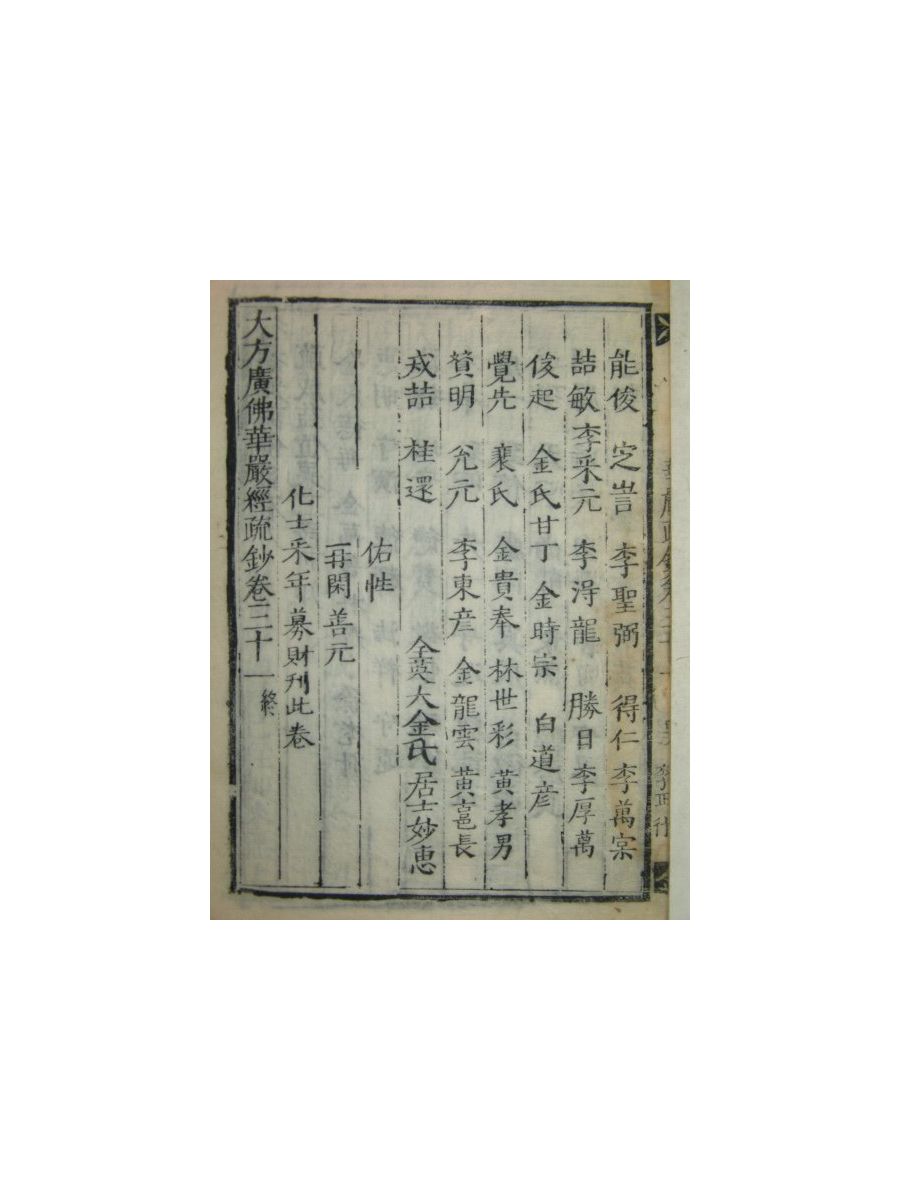 能俊 定訔 李聖弼 得仁 李萬宗
喆敏 李采元 李淂龍 勝日 李厚萬
俊起 金氏甘丁 金時宗 白道彦
覺先 裵氏 金貴奉 林世彩 黃孝男
賛明 允元 李東彦 金龍雲 黃邕長
戎喆 桂還 全英大 金氏 居士妙恵
佑性
再閑善元
化士采年募財刊此卷
大方廣佛華嚴經疏鈔卷三十一 終